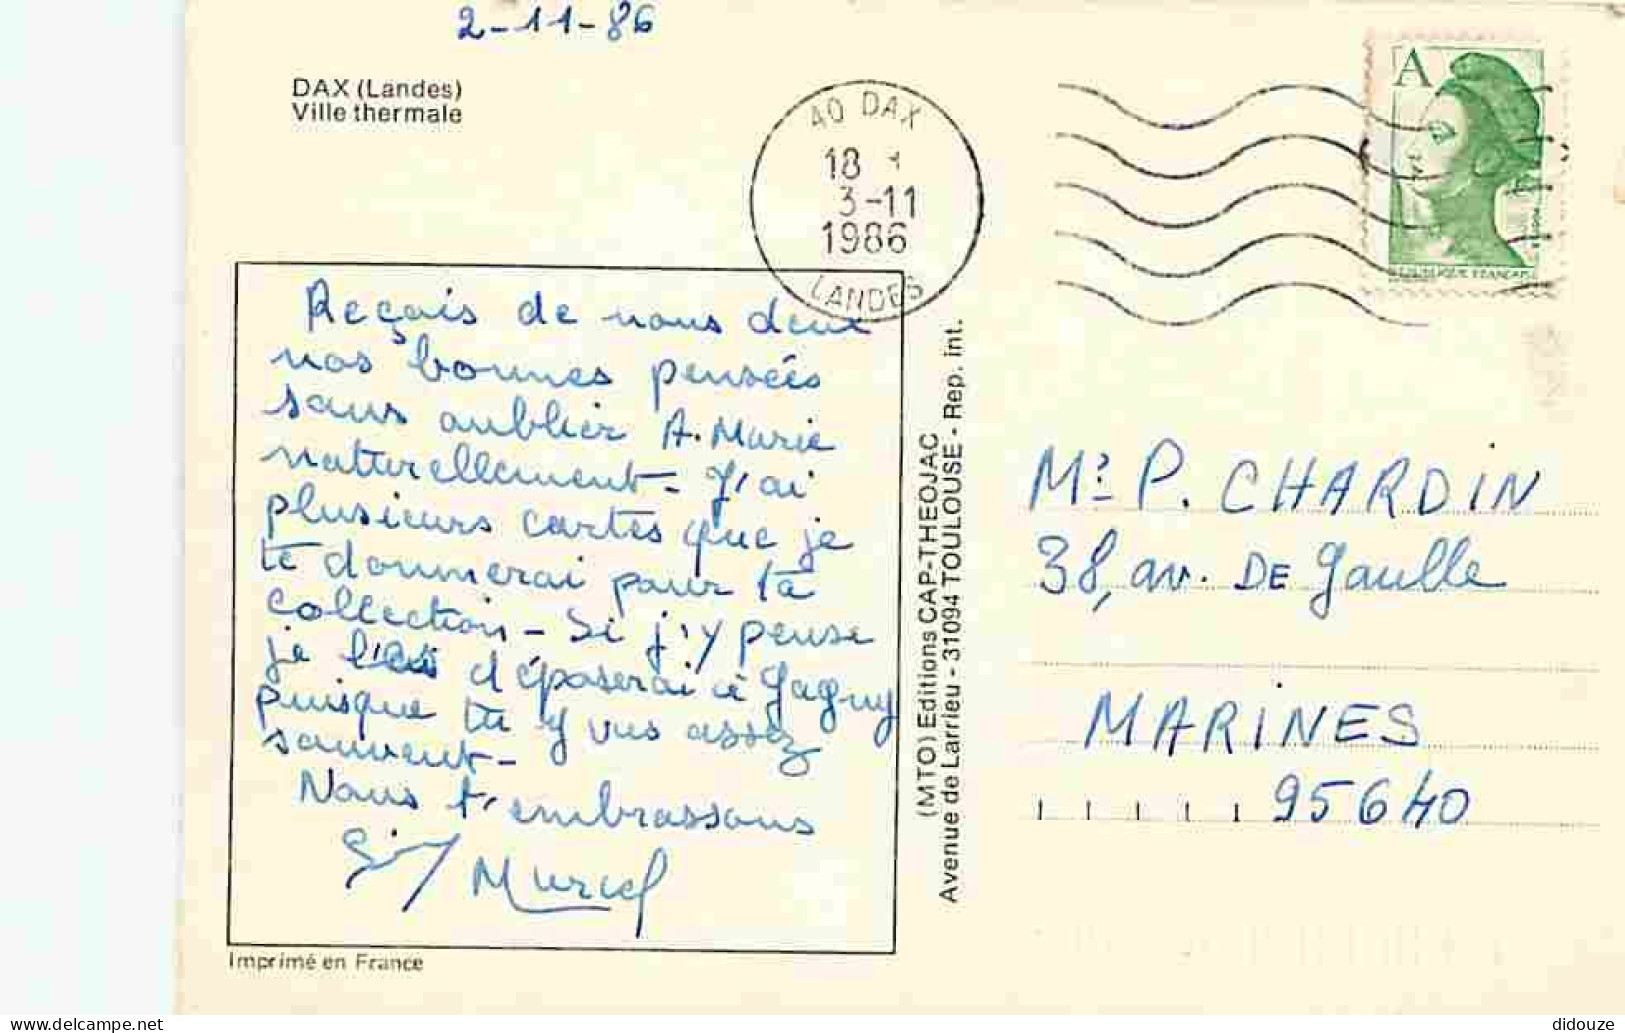 2-11-86
DAX (Landes)
Ville thermale
40 DAX
18
3-11
1986
LANDES
A
REPUBLIQUE FRANÇAISE
Reçois de nous deux
nos bonnes pensées
sans oublier A. Marie
naturellement - J'ai
plusieurs cartes que je
te donnerai pour ta
collection - Si j'y pense
je les déposerai à Gagny
puisque tu y vas assez
souvent -
Nous t'embrassons
Marcel
Imprimé en France
(MTO) Editions CAP-THEOJAC
Avenue de Larrieu - 31094 TOULOUSE - Rep. int.
Mr P. CHARDIN
38, av. DE Gaulle
MARINES
95640
didouze